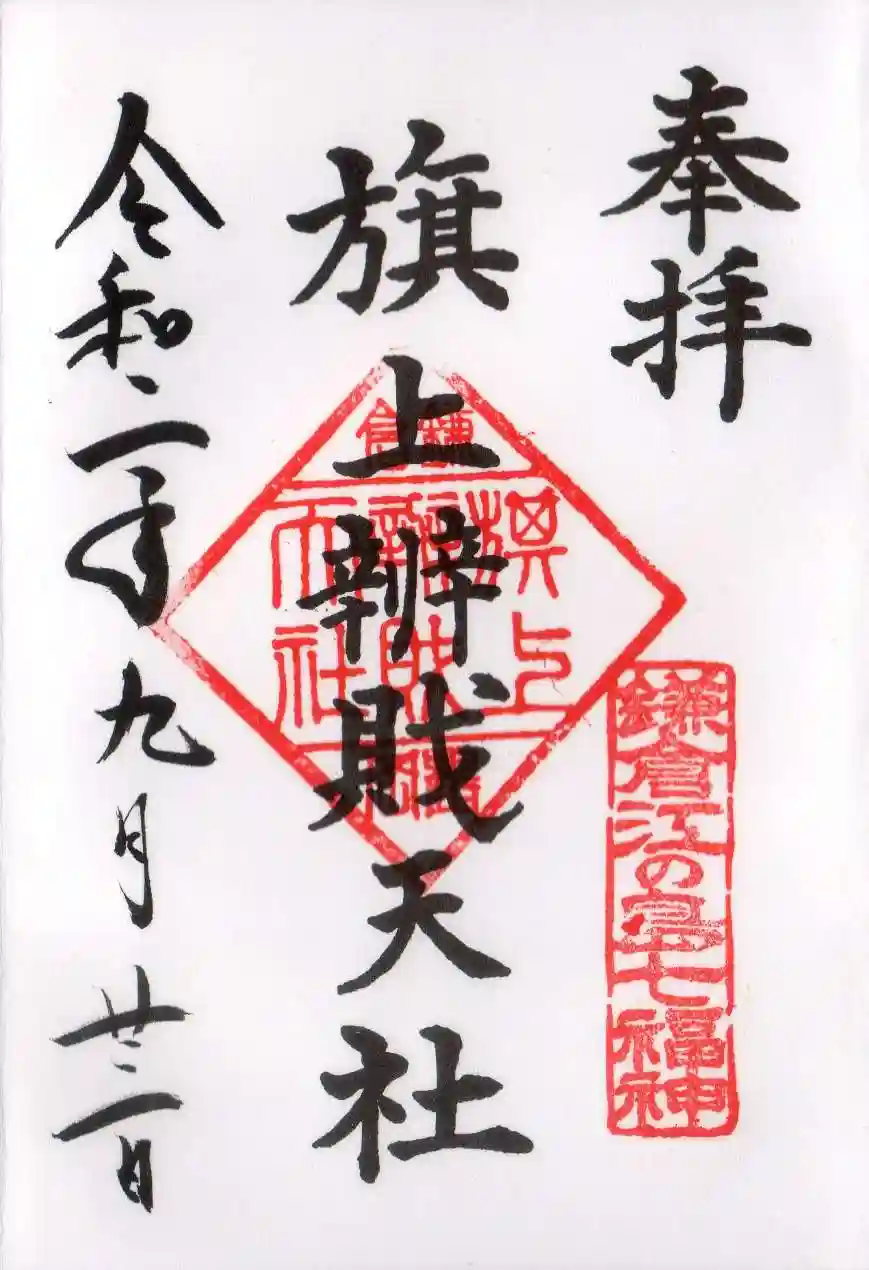 奉拝
旗上辨財天社
令和二年九月廿二日
鎌倉
旗上
辨財
天社
鎌倉江の島七福神